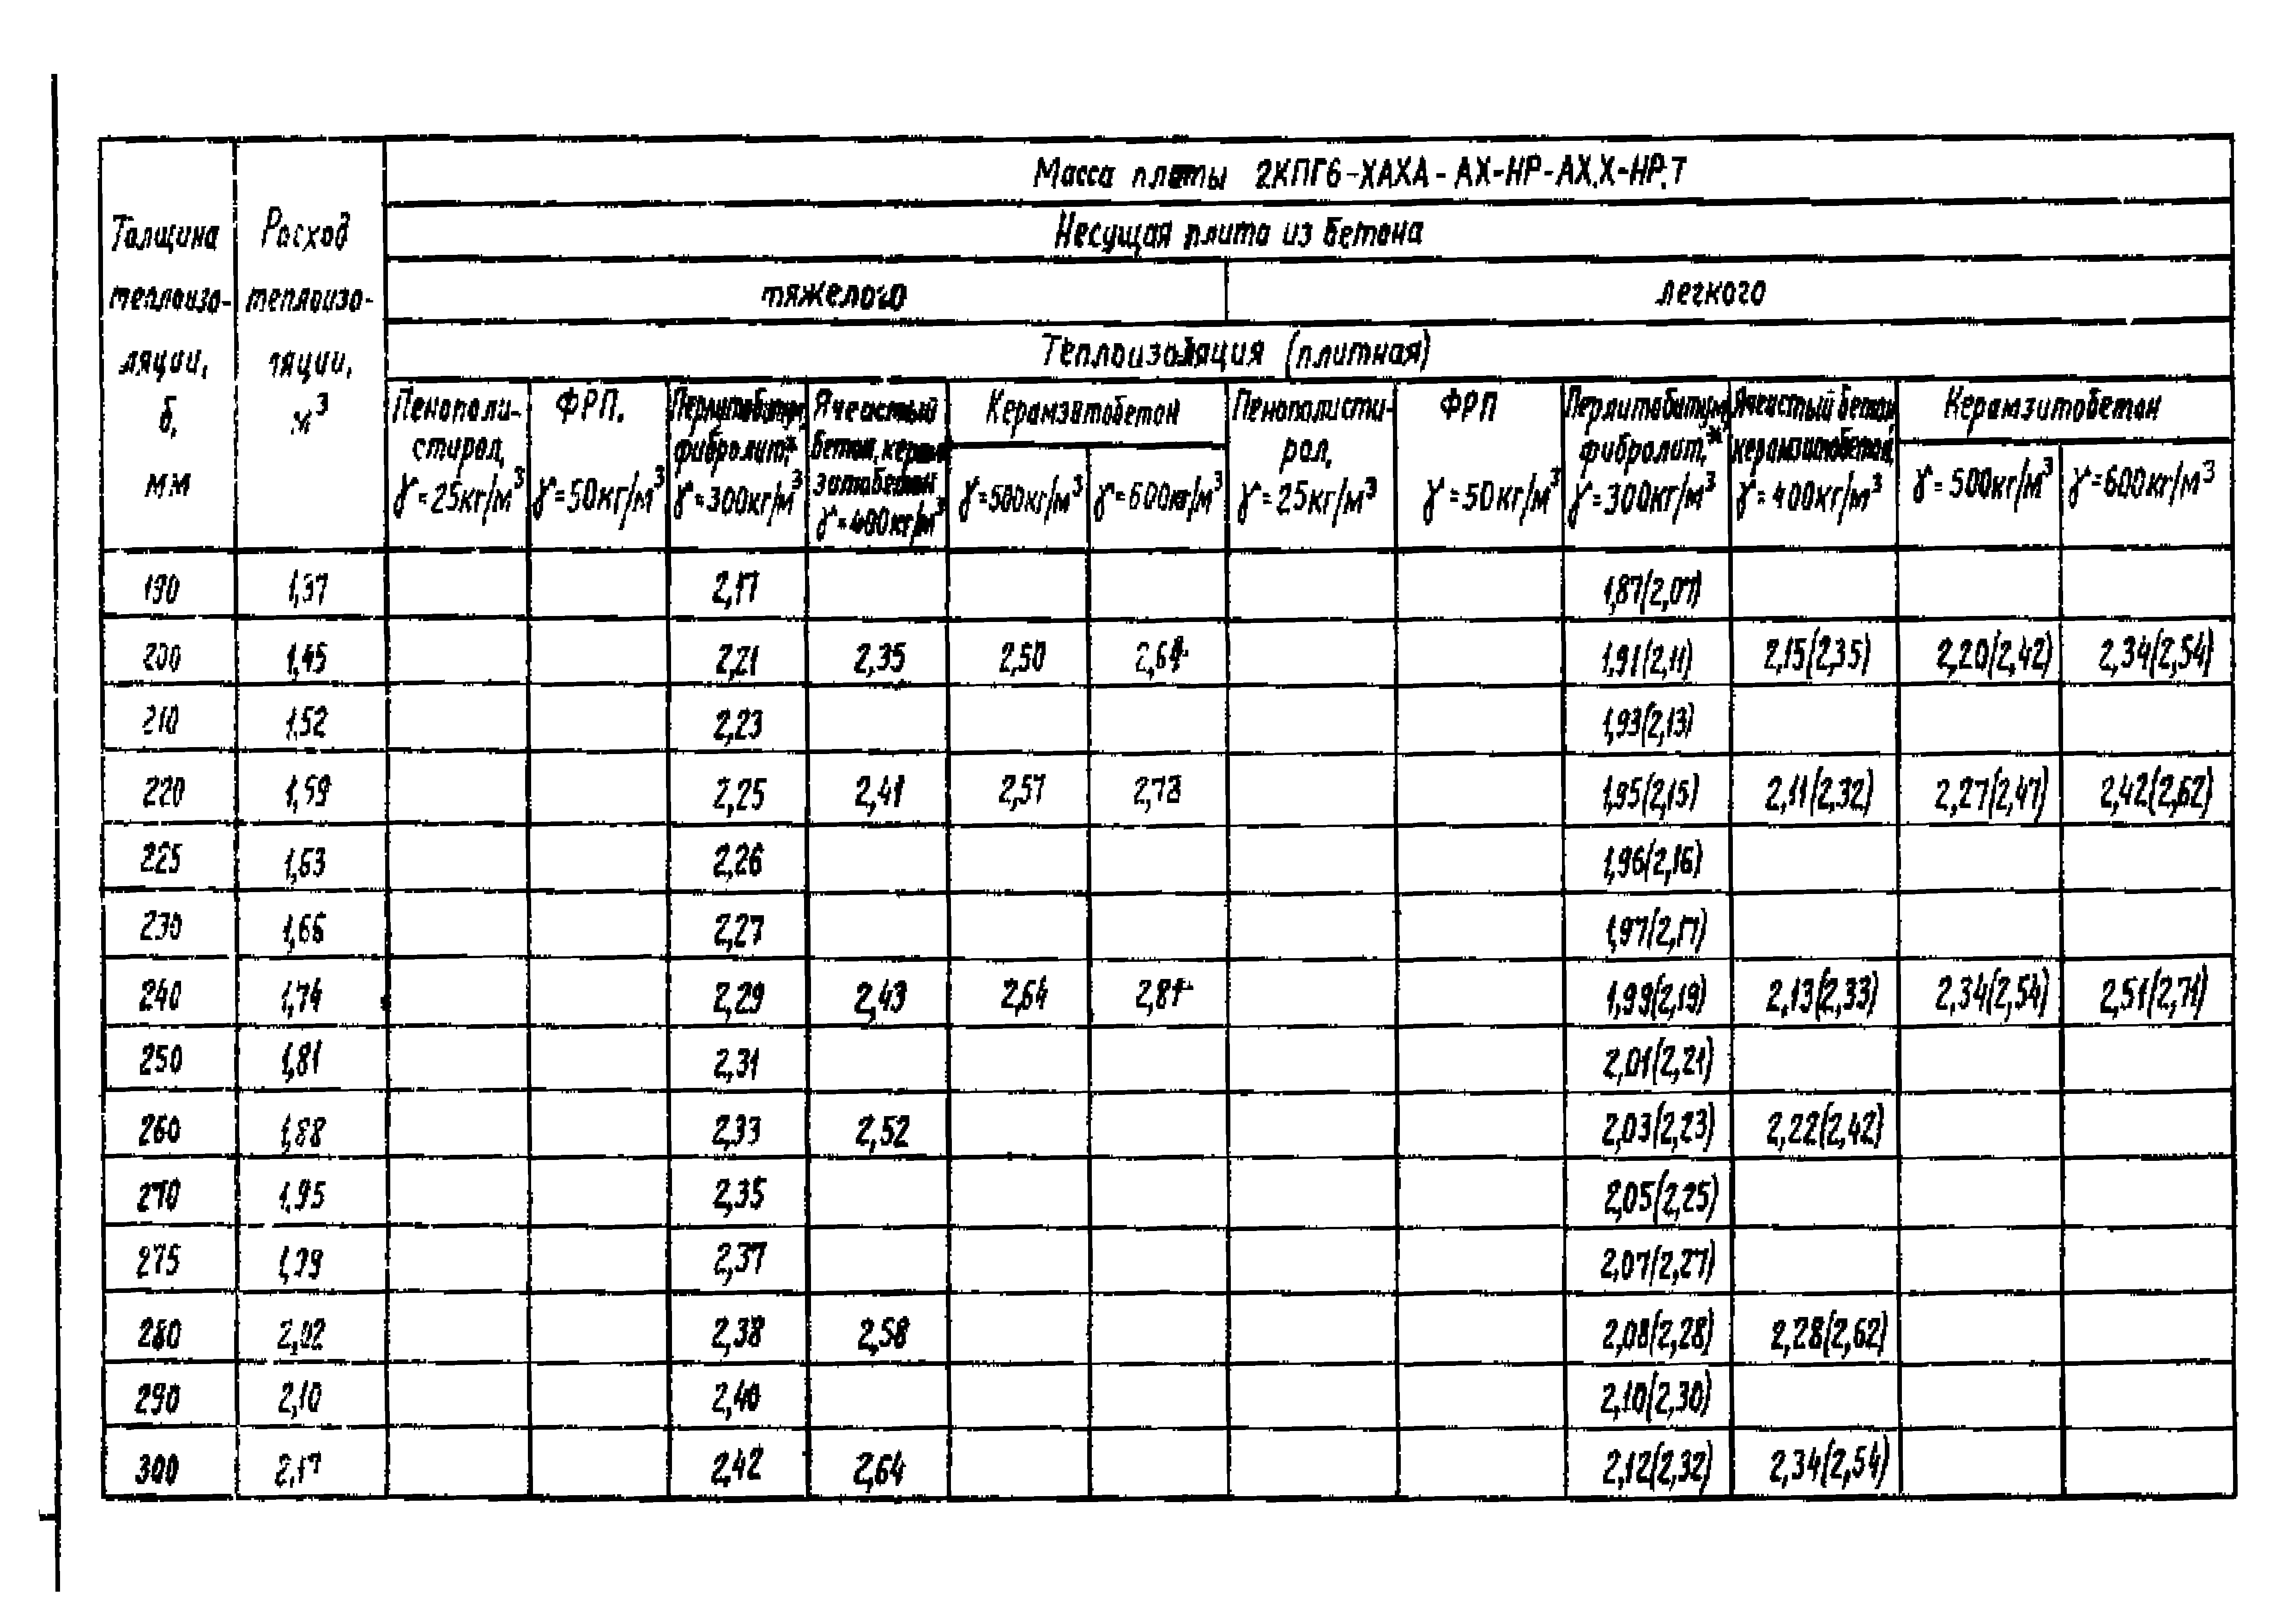 Масса плиты 2КПГ6-ХАХА-АХ-НР-АХ.Х-НР, Т
Несущая плита из бетона
тяжелого легкого
Теплоизоляция (плитная)
Толщина
теплоизо-
ляции,
δ,
мм
Расход
теплоизо-
ляции,
м³
Пенополи-
стирол,
γ=25кг/м³
ФРП.
γ=50кг/м³
Перлитобитум,
фибролит,*
γ=300кг/м³
Ячеистый
бетон, керам-
зитобетон
γ=400кг/м³
Керамзитобетон
γ=500кг/м³ γ=600кг/м³
Пенополисти-
рол,
γ=25кг/м³
ФРП
γ=50кг/м³
Перлитобитум,
фибролит,*
γ=300кг/м³
Ячеистый бетон,
керамзитобетон,
γ=400кг/м³
Керамзитобетон
γ=500кг/м³ γ=600кг/м³
190 1,37 2,17 1,87(2,07)
200 1,45 2,21 2,35 2,50 2,64 1,91(2,11) 2,15(2,35) 2,20(2,42) 2,34(2,54)
210 1,52 2,23 1,93(2,13)
220 1,59 2,25 2,41 2,57 2,73 1,95(2,15) 2,11(2,32) 2,27(2,47) 2,42(2,62)
225 1,63 2,26 1,96(2,16)
230 1,66 2,27 1,97(2,17)
240 1,74 2,29 2,43 2,64 2,81 1,99(2,19) 2,13(2,33) 2,34(2,54) 2,51(2,71)
250 1,81 2,31 2,01(2,21)
260 1,88 2,33 2,52 2,03(2,23) 2,22(2,42)
270 1,95 2,35 2,05(2,25)
275 1,99 2,37 2,07(2,27)
280 2,02 2,38 2,58 2,08(2,28) 2,28(2,62)
290 2,10 2,40 2,10(2,30)
300 2,17 2,42 2,64 2,12(2,32) 2,34(2,54)